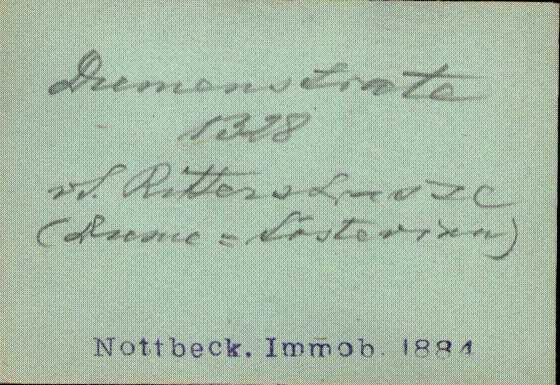 Dumenstrate
1328
vS. Ritterstrasze
(Dume = Klosterixn)
Nottbeck. Immob. 1884